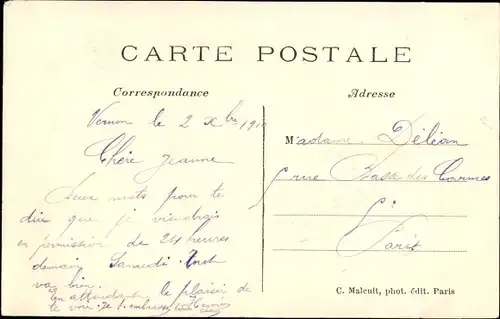 CARTE POSTALE
Correspondance
Adresse
Vernon le 2 Xbre 19
Chère Jeanne
Deux mots pour te
dire que je viendrais
en permission de 24 heures
demain Samedi. Tout
va bien.
En attendant le plaisir de
te voir je t'embrasse
Madame Déléan
rue Basse des Carmes
Paris
C. Malcuit, phot. édit. Paris